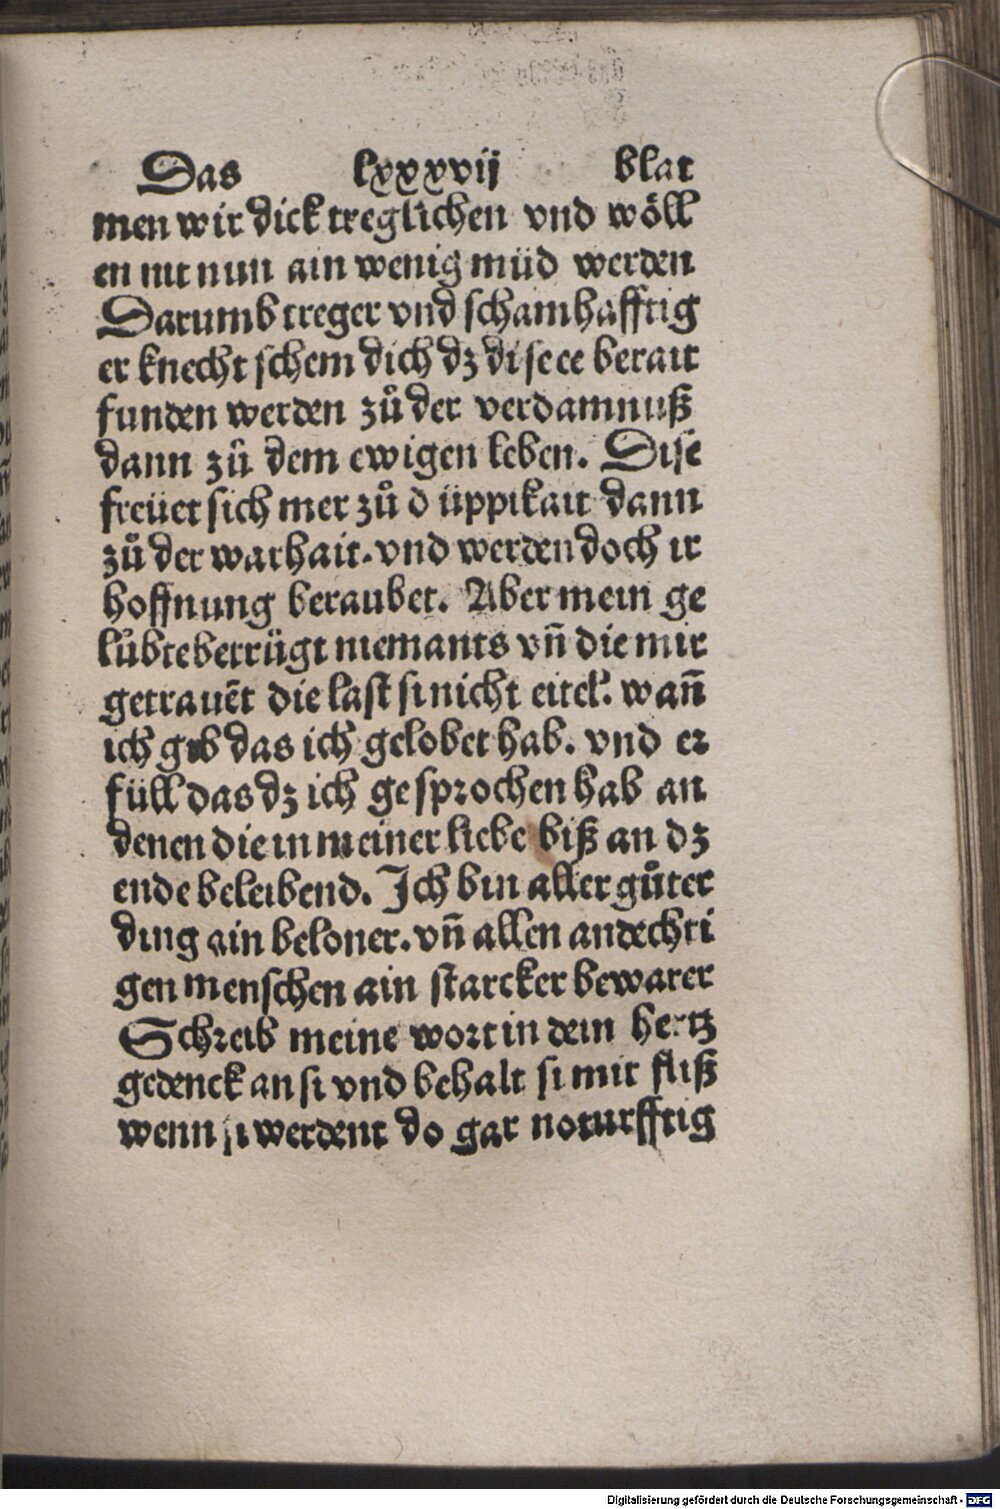 Das lxxxvij blat
men wir dick treglichen vnd wöll
en nit nun ain wenig müd werden
Darumb treger vnd schamhafftig
er knecht schem dich dz dise ee berait
funden werden zů der verdamnuß
dann zů dem ewigen leben. Dise
freüet sich mer zů d üppikait dann
zů der warhait. vnd werden doch ir
hoffnung beraubet. Aber mein ge
lůbte betrügt niemants vñ die mir
getrauẽt die last si nicht eitel. wañ
ich gib das ich gelobet hab. vnd er
füll das dz ich gesprochen hab an
denen die in meiner liebe biß an dz
ende beleibend. Ich bin aller gůter
ding ain beloner. vñ allen andechti
gen menschen ain starcker bewarer
Schreib meine wort in dein hertz
gedenck an si vnd behalt si mit fliß
wenn si werdent do gar noturfftig
Digitalisierung gefördert durch die Deutsche Forschungsgemeinschaft - DFG